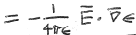 = - 1/4πε E̅ · ∇̅ ε